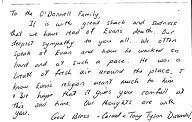 To the O'Donnell Family.
It is with great shock and sadness
that we have read of Evans death. Our
deepest sympathy to you all. We often
speak of Evan and how he worked so
hard and at such a pace. He was a
breath of fresh air around the place, I
know Evans religion meant much to him
& We hope that it gives you comfort at
this sad time. Our thoughts are with
you.
God Bless - Carmel & Tony Tyson